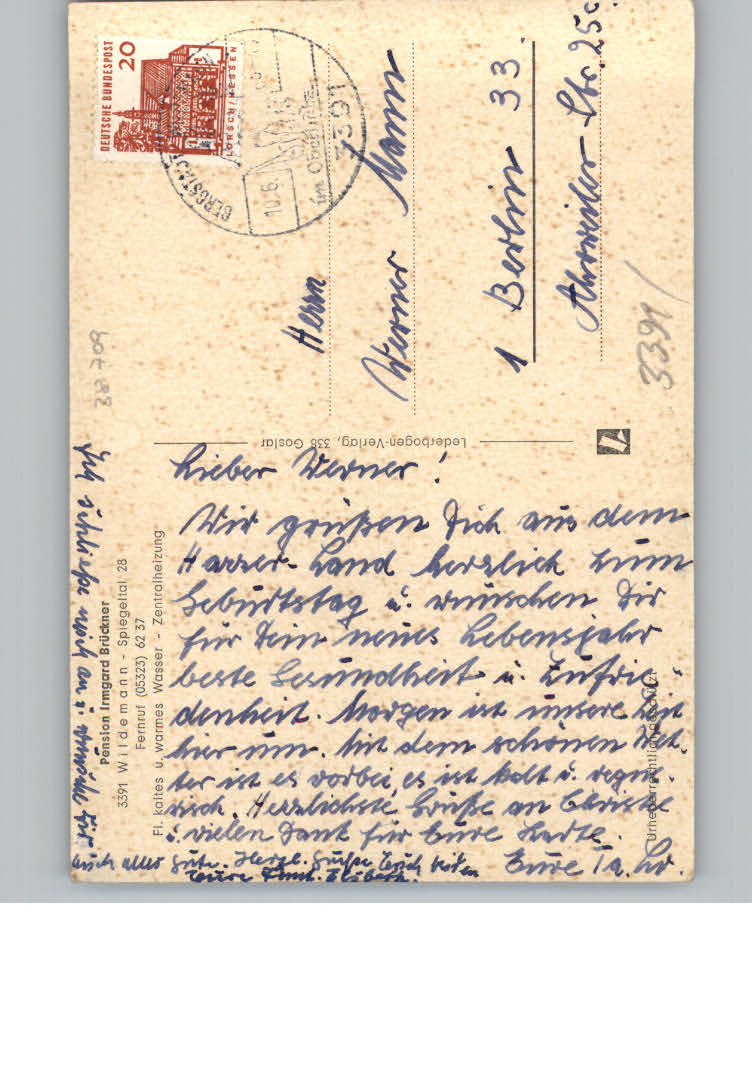 DEUTSCHE BUNDESPOST
20
LORSCH/HESSEN
BERGSTADT
10.6.
im Oberharz
3391
Herrn
Werner Mann
1 Berlin 33.
Ahrweiler Str. 25c
3391/
38 709
Lederbogen-Verlag, 338 Goslar
Pension Irmgard Brückner
3391 Wildemann - Spiegeltal 28
Fernruf (05323) 62 37
Fl. kaltes u. warmes Wasser - Zentralheizung
Urheberrechtlich geschützt
Lieber Werner!
Wir grüßen Dich aus dem
Harzer-Land herzlich zum
Geburtstag u. wünschen Dir
für Dein neues Lebensjahr
beste Gesundheit u. Zufrie-
denheit. Morgen ist unsere Zeit
hier um. Mit dem schönen Wet-
ter ist es vorbei, es ist kalt u. regne-
risch. Herzlichste Grüße an
u. vielen Dank für Eure Karte.
Eure
Ich schließe mich an u. wünsche Dir
auch alles Gute. Herzl. Grüße Euch beiden
Eure